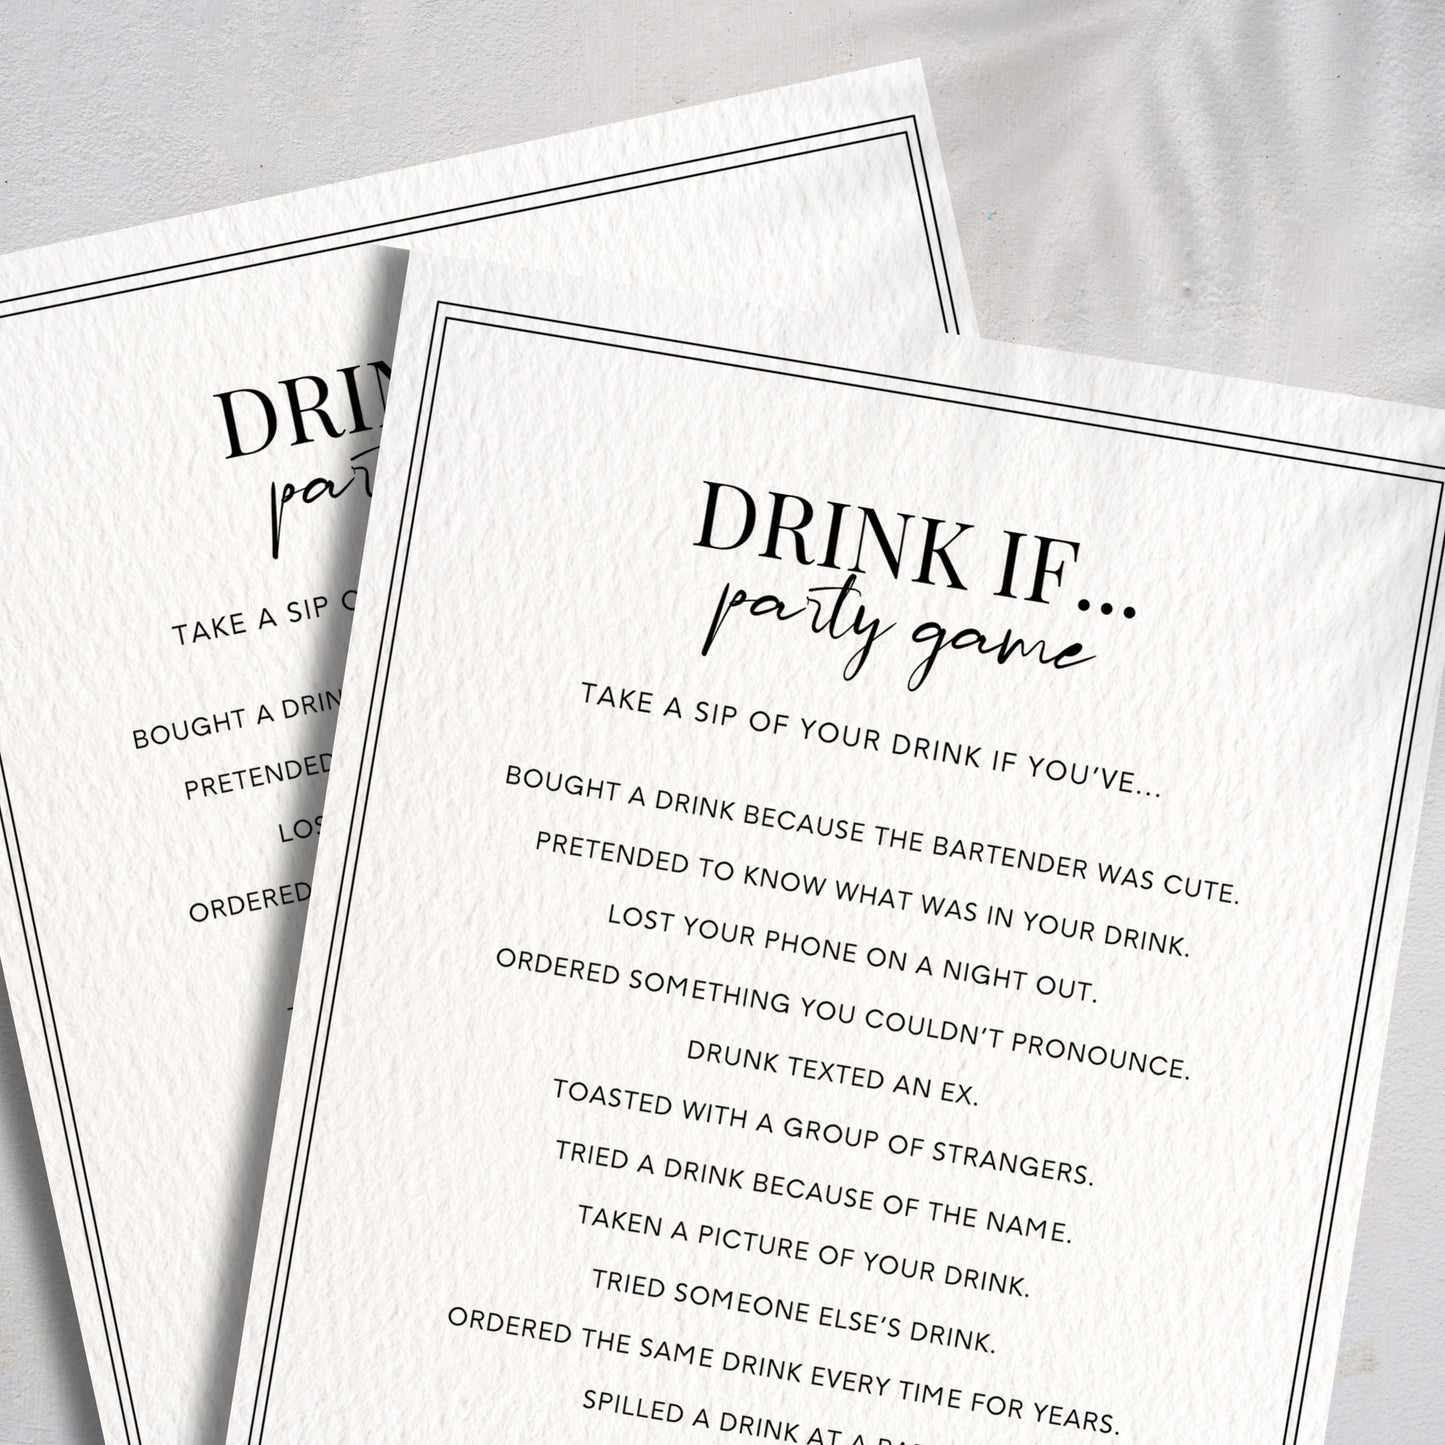 DRIN
part
TAKE A SIP
BOUGHT A DRIN
PRETENDED
LOS
ORDERED
DRINK IF...
party game
TAKE A SIP OF YOUR DRINK IF YOU'VE...
BOUGHT A DRINK BECAUSE THE BARTENDER WAS CUTE.
PRETENDED TO KNOW WHAT WAS IN YOUR DRINK.
LOST YOUR PHONE ON A NIGHT OUT.
ORDERED SOMETHING YOU COULDN'T PRONOUNCE.
DRUNK TEXTED AN EX.
TOASTED WITH A GROUP OF STRANGERS.
TRIED A DRINK BECAUSE OF THE NAME.
TAKEN A PICTURE OF YOUR DRINK.
TRIED SOMEONE ELSE'S DRINK.
ORDERED THE SAME DRINK EVERY TIME FOR YEARS.
SPILLED A DRINK AT A